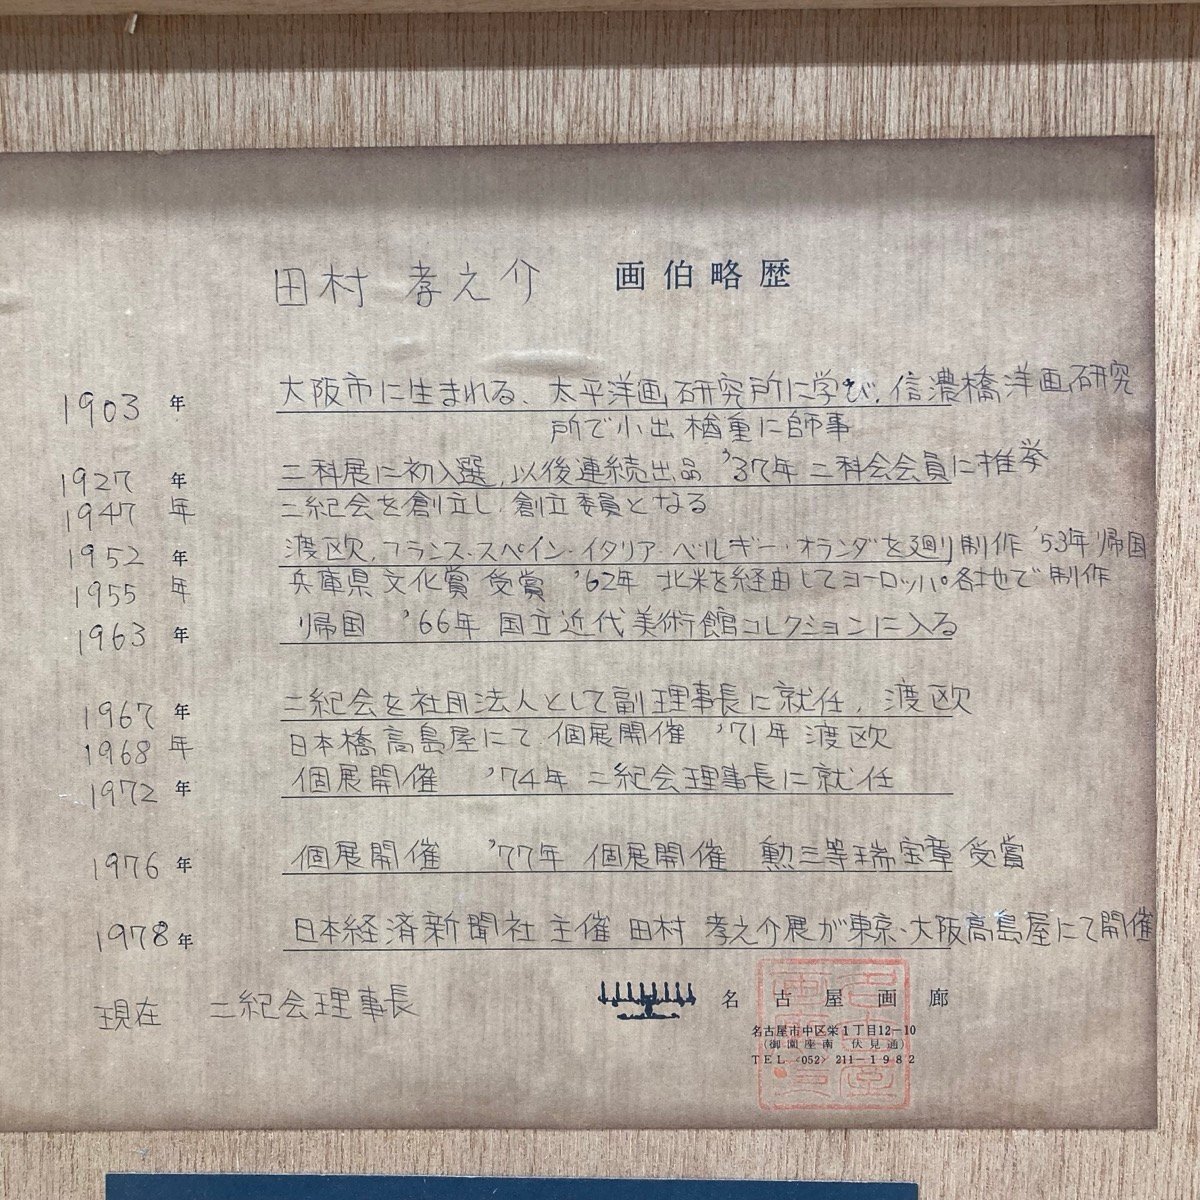 田村 孝之介 画伯略歴
1903年 大阪市に生まれる、太平洋画研究所に学び、信濃橋洋画研究
所で小出楢重に師事
1927年 二科展に初入選、以後連続出品 '37年 二科会会員に推挙
1947年 二紀会を創立し、創立委員となる
1952年 渡欧、フランス・スペイン・イタリア・ベルギー・オランダを廻り制作 '53年帰国
1955年 兵庫県文化賞受賞 '62年 北米を経由してヨーロッパ各地で制作
1963年 帰国 '66年 国立近代美術館コレクションに入る
1967年 二紀会を社団法人として副理事長に就任、渡欧
1968年 日本橋高島屋にて個展開催 '71年 渡欧
1972年 個展開催 '74年 二紀会理事長に就任
1976年 個展開催 '77年 個展開催 勲三等瑞宝章受賞
1978年 日本経済新聞社主催 田村孝之介展が東京・大阪高島屋にて開催
現在 二紀会理事長
名古屋画廊
名古屋市中区栄1丁目12-10
(御園座南 伏見通)
TEL <052> 211-1982